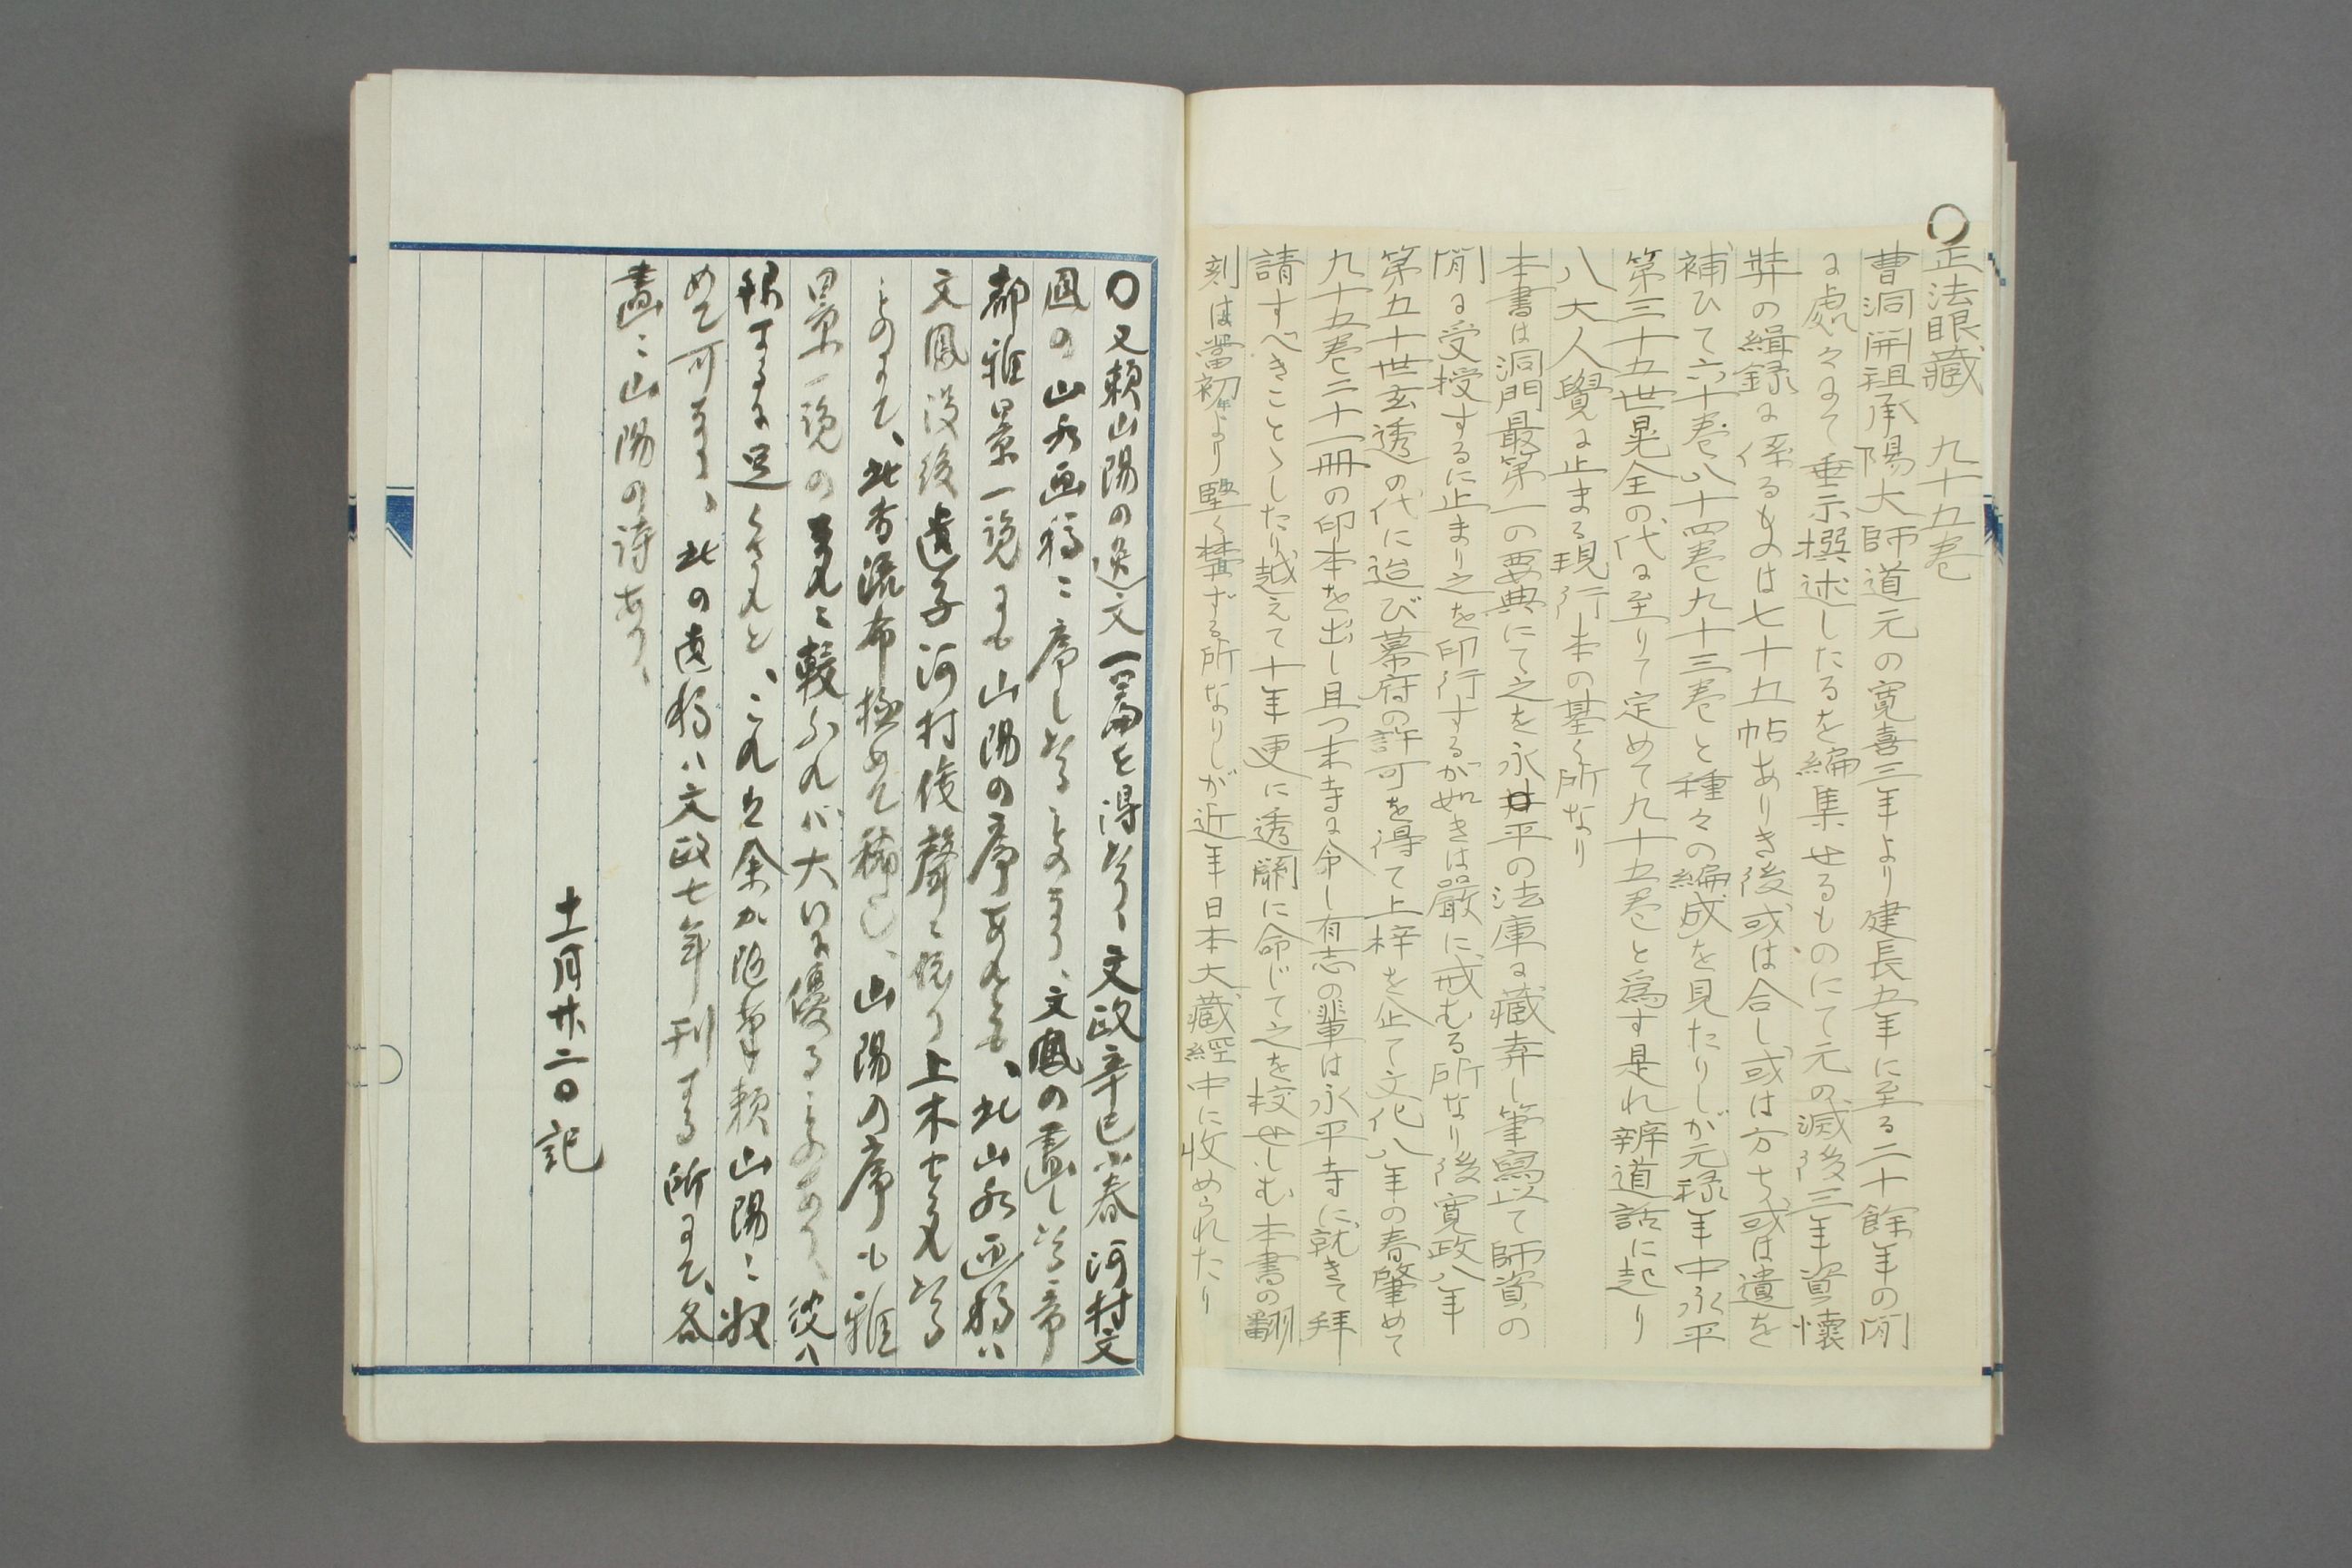 正法眼藏　九十五巻
曹洞開祖承陽大師道元の寛喜三年より建長五年に至る二十餘年の間
に處々にて垂示撰述したるを編集せるものにて元の滅後三年資懷
弉の緝録に係るものは七十五帖ありき後或は合し或は方ち或は遺を
補ひて六十巻八十四巻九十三巻と種々の編成を見たりしが元禄年中永平
第三十五世晃全の代に至りて定めて九十五巻と爲す是れ辨道話に起り
八大人覺に止まる現行本の基く所なり
本書は洞門最第一の要典にて之を永平の法庫に藏弆し筆寫以て師資の
間に受授するに止まり之を印行するが如きは嚴に戒むる所なり後寛政八年
第五十世玄透の代に迨び幕府の許可を得て上梓を企て文化八年の春肇めて
九十五巻二十一冊の印本を出し且つ末寺に令し有志の輩は永平寺に就きて拜
請すべきことゝしたり越えて十年更に透關に命じて之を校せしむ本書の翻
刻は當初年より堅く禁ずる所なりしが近年日本大藏經中に收められたり
〇又頼山陽の逸文一篇を得たり、文政辛巳小春河村文
鳳の山水画稿に序したるものなり、文鳳の畫したる帝
都雅景一覽にも山陽の序あれども、此山水画稿ハ
文鳳没後遺子河村俊聲に
ものにて、此書流布極めて稀也、山陽の序も雅
景一覽のそれに較ふれバ大いに優るものあり、彼ハ
これ
めて可なり、此の画稿ハ文政七年刊する所にて、各
畫に山陽の詩あり、
十一月廿二日記